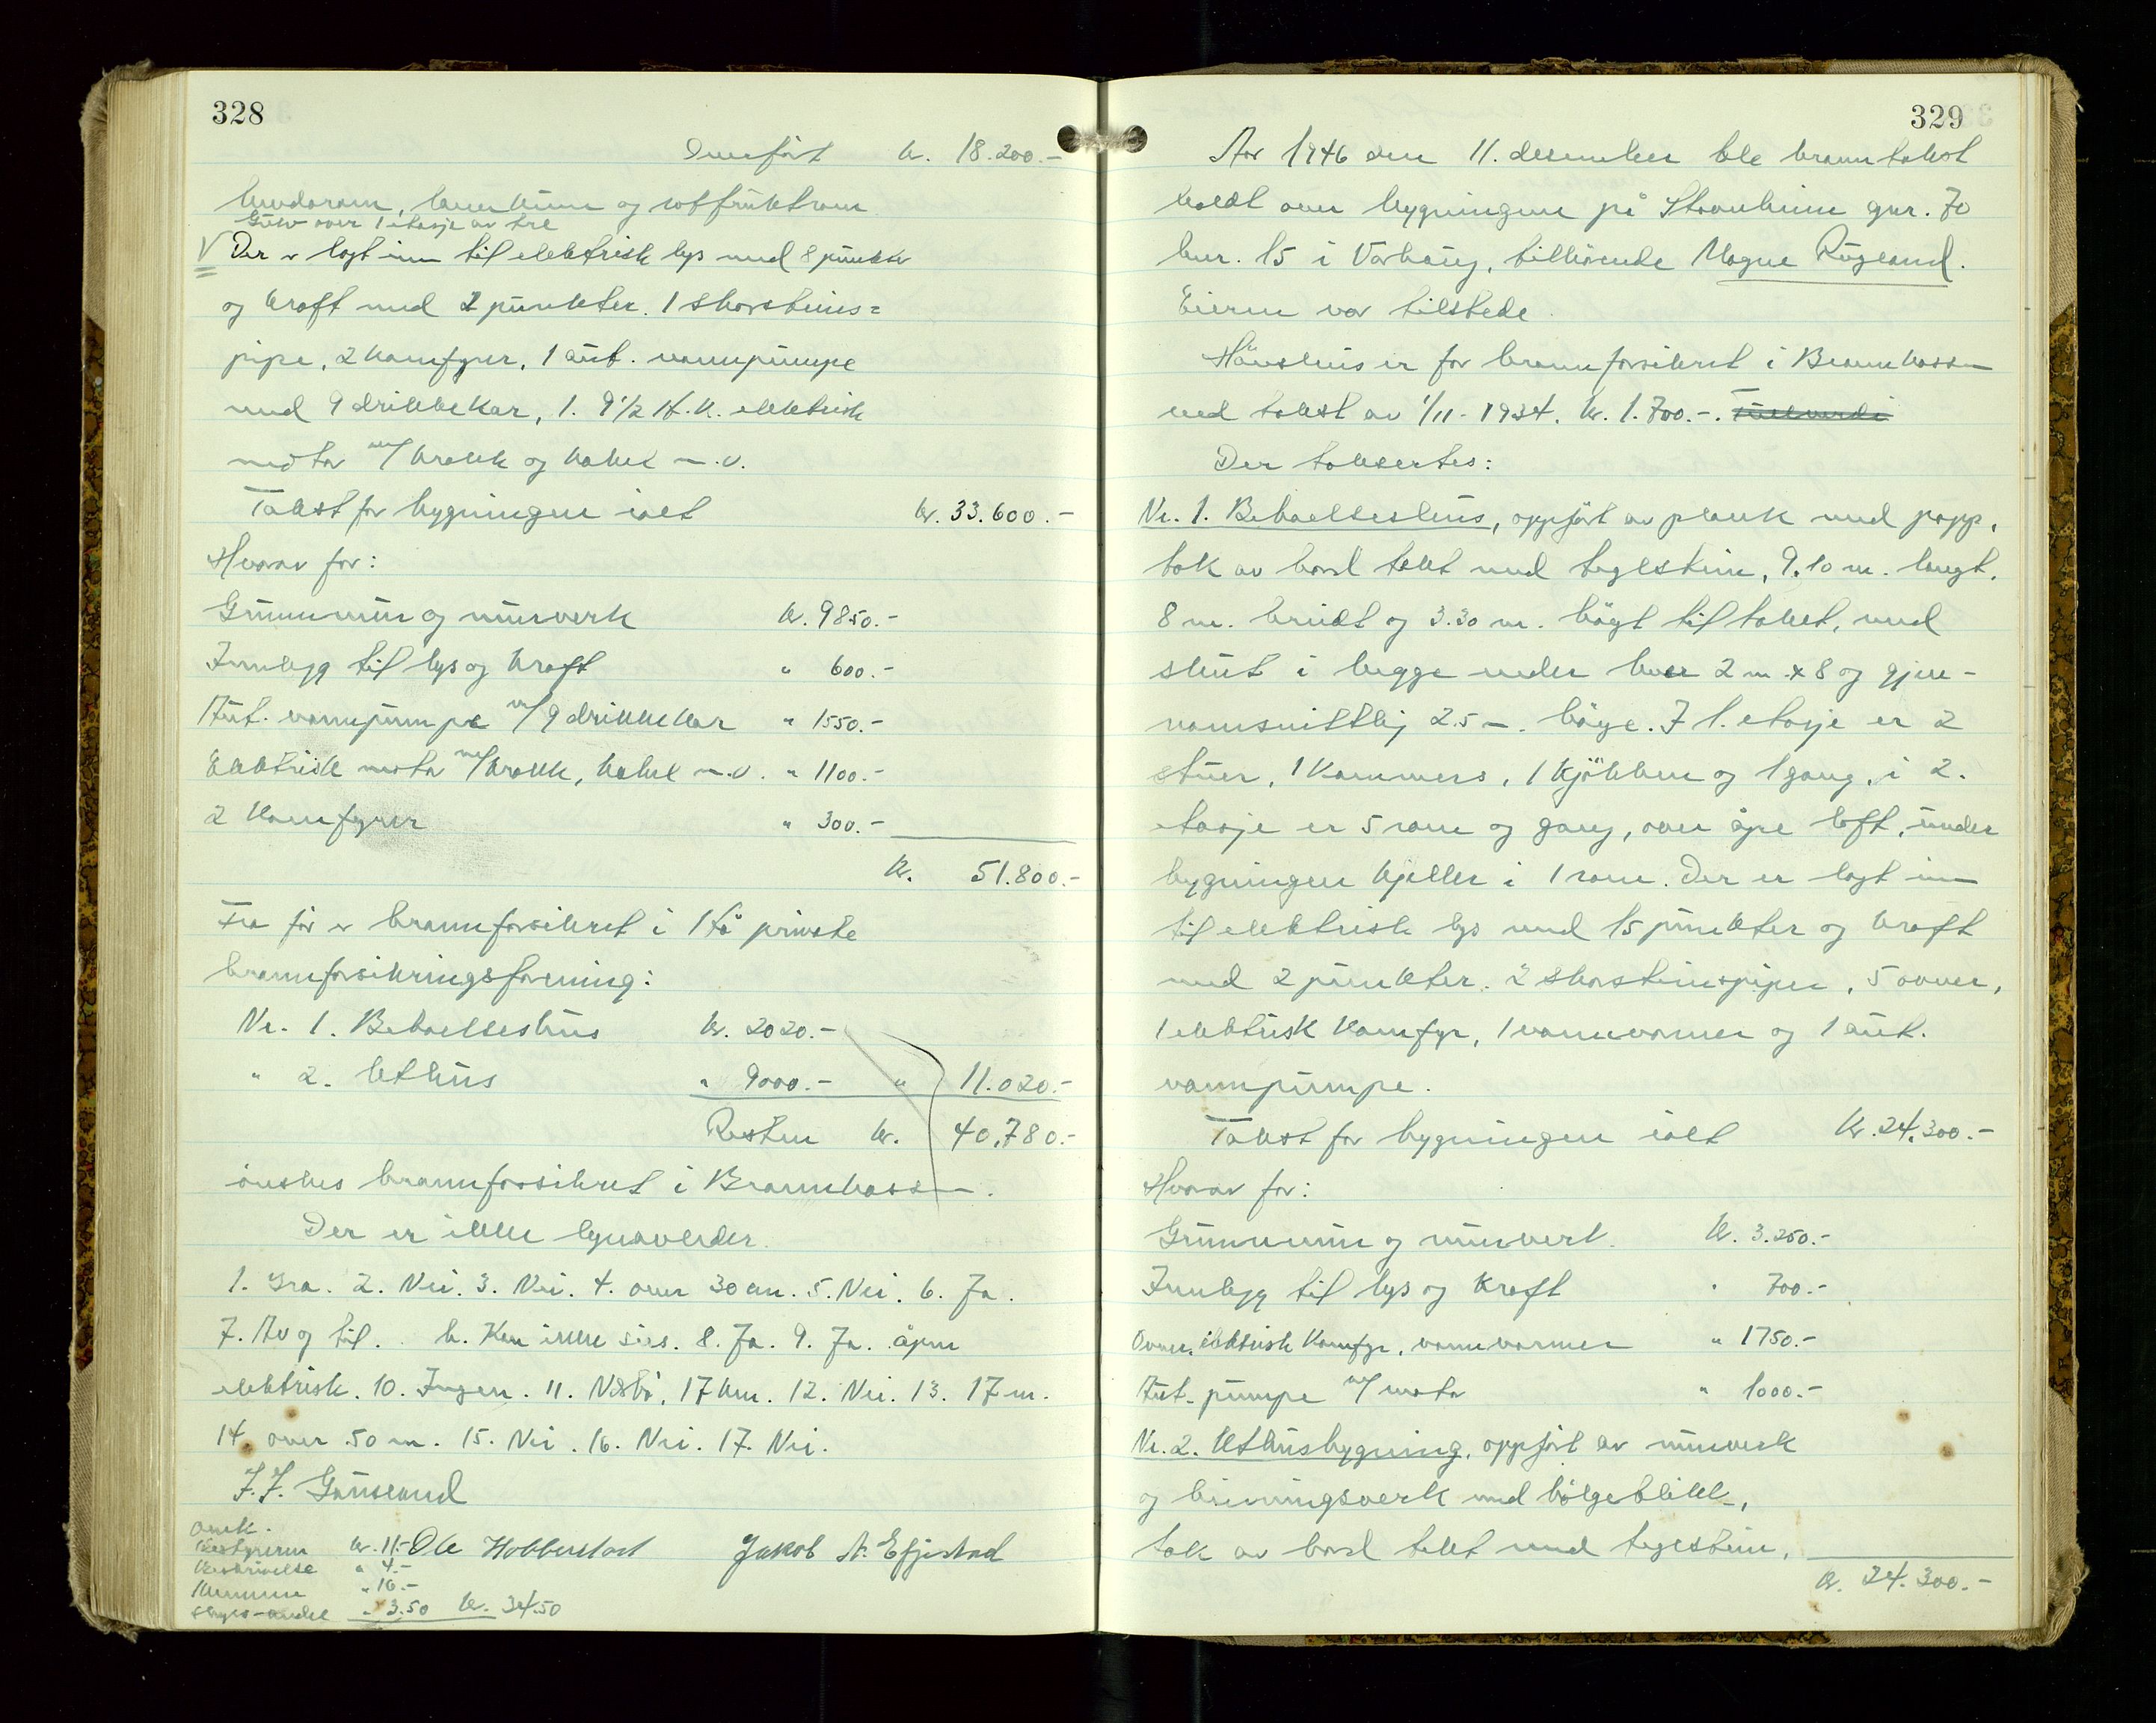 328
Overført kr. 18.200.-
kuvdorom, kum og rotfruktrom
Gulv over 1 etasje av tre
V Der er lagt inn til elektrisk lys med 8 punkter
og kraft med 2 punkter. 1 skorsteins=
pipe, 2 komfyrer, 1 aut. vannpumpe
med 9 drikkekar, 1. 9 1/2 H.K. elektrisk
motor m/ krakk og kabel m.v.
Takst for bygningen ialt kr. 33.600.-
Hvorav for:
Grunnmur og murverk kr. 9850.-
Innlegg til lys og kraft " 600.-
Aut. vannpumpe m/ 9 drikkekar " 1550.-
Elektrisk motor m/ krakk, kabel m.v. " 1100.-
2 Komfyrer " 300.-
kr. 51.800.-
Fra før er brannforsikret i Hå private
brannforsikringsforening:
Nr. 1. Beboelseshus kr. 2020.-
" 2. Uthus " 9000.- " 11.020.-
Resten kr. 40.780.-
ønskes brannforsikret i Brannkassen.
Der er ikke lynavleder.
1. Bra. 2. Nei. 3. Nei. 4. over 30 cm. 5. Nei. 6. Ja.
7. Av og til. b. Kan ikke sies. 8. Ja. 9. Ja. åpen
elektrisk. 10. Ingen. 11. Nærbø, 17 km. 12. Nei. 13. 17 m.
14. over 50 m. 15. Nei. 16. Nei. 17. Nei.
J. J. Grauseland
Omk.
Bestyreren kr. 11.- Ole Hobberstad Jakob A. Efjestad
Beskrivelse " 4.-
Mennene " 16.-
skyss-andel " 3.50 kr. 34.50
329
Aar 1946 den 11. desember ble branntakst
holdt over bygningene på Stavnheim gnr. 70
bnr. 15 i Varhaug, tilhørende Magne Rugland.
Eieren var tilstede.
Våningshus er før brannforsikret i Brannkassen
ved takst av 1/11-1934. kr. 1.700.-.
Der takseres:
Nr. 1. Beboelseshus, oppført av plank med papp,
tak av bord tekt med teglstein, 9.10 m. langt,
8 m. breidt og 3.30 m. høgt til taket, med
skut i begge ender hver 2 m. x 8 og gjen-
nomsnittlig 2.5 m. høge. I 1. etasje er 2
stuer, 1 kammers, 1 kjøkken og 1 gang, i 2.
etasje er 5 rom og gang, over åpe loft, under
bygningen kjeller i 1 rom. Der er lagt inn
til elektrisk lys med 15 punkter og kraft
med 2 punkter. 2 skorsteinspiper, 5 ovner,
1 elektrisk komfyr, 1 vannvarmer og 1 aut.
vannpumpe.
Takst for bygningen ialt kr. 24.300.-
Hvorav for:
Grunnmur og murverk kr. 3.250.-
Innlegg til lys og kraft " 700.-
Ovner, elektrisk komfyr, vannvarmer " 1750.-
Aut. pumpe m/ motor " 1000.-
Nr. 2. Uthusbygning, oppført av murverk
og binningsverk med bølgeblikk,
tak av bord tekt med teglstein,
kr. 24.300.-